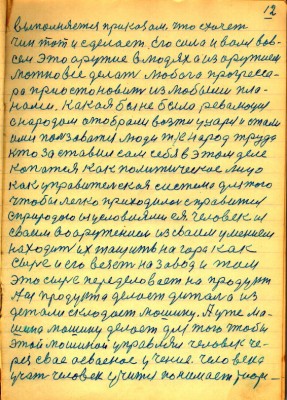 12
выполняется приказам. что схочет
чин тот и сделает. Его сила и воля во в-
сем Это оружие в людях а из оружием
можно все делат любого прогресса-
ра приостоновить из любыми пла-
нами. Какая бы не была революция
с народом отобрали возти у царя и стали
ими пользоватся люди т/е народ труда
кто заставил сам себя в этом деле
копатся как политическое лицо
как управительская система для того
чтобы легко приходилос справится
с природою из условиями ея человек из
своим вооружением из своим умением
находит их тащить на гора как
сырье и его везет на завод и там
это сырье переделовает на продукт
А из продукта делает детала из
детали складает машину. А уже ма-
шина машину делает для того чтобы
этой машиной управлял человек че-
рез свае асваеное учение. человека
учат человек учится понимает